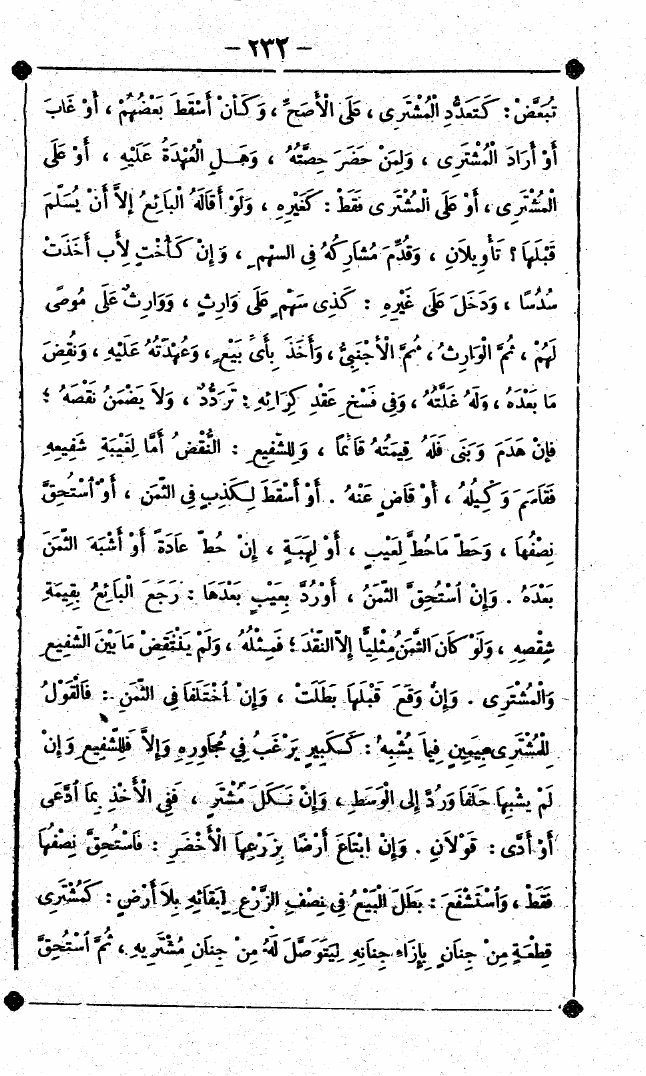 — ٢٣٢ —
تُبَعَّضْ : كَتَعَدُّدِ الْمُشْتَرِى ، عَلَى الْأَصَحِّ ، وَكَأَنْ أَسْقَطَ بَعْضُهُمْ ، أَوْ غَابَ
أَوْ أَرَادَ الْمُشْتَرِى ، وَلِمَنْ حَضَرَ حِصَّتُهُ ، وَهَلِ الْعُهْدَةُ عَلَيْهِ ، أَوْ عَلَى
الْمُشْتَرِى ، أَوْ عَلَى الْمُشْتَرِى فَقَطْ : كَغَيْرِهِ ، وَلَوْ أَقَالَهُ الْبَائِعُ إِلاَّ أَنْ يُسَلِّمَ
قَبْلَهَا ؟ تَأْوِيلاَنِ ، وَقُدِّمَ مُشَارِكُهُ فِى السَّهْمِ ، وَإِنْ كَأُخْتٍ لِأَبٍ أَخَذَتْ
سُدُسًا ، وَدَخَلَ عَلَى غَيْرِهِ : كَذِى سَهْمٍ عَلَى وَارِثٍ ، وَوَارِثٌ عَلَى مُوصًى
لَهُمْ ، ثُمَّ الْوَارِثُ ، ثُمَّ الْأَجْنَبِىُّ ، وَأَخَذَ بِأَىِّ بَيْعٍ ، وَعُهْدَتُهُ عَلَيْهِ ، وَنُقِضَ
مَا بَعْدَهُ ، وَلَهُ غَلَّتُهُ ، وَفِى فَسْخِ عَقْدِ كِرَائِهِ : تَرَدُّدٌ ، وَلاَ يَضْمَنُ نَقْصَهُ ؛
فَإِنْ هَدَمَ وَبَنَى فَلَهُ قِيمَتُهُ قَائِمًا ، وَلِلشَّفِيعِ : النُّقْضُ أَمَّا لِغَيْبَةِ شَفِيعِهِ
فَقَاسَمَ وَكِيلُهُ ، أَوْ قَاضٍ عَنْهُ . أَوْ أَسْقَطَ لِكَذِبٍ فِى الثَّمَنِ ، أَوْ اُسْتُحِقَّ
نِصْفُهَا ، وَحَطَّ مَا حُطَّ لِعَيْبٍ ، أَوْ لِهِبَةٍ ، إِنْ حُطَّ عَادَةً أَوْ أَشْبَهَ الثَّمَنَ
بَعْدَهُ . وَإِنْ اُسْتُحِقَّ الثَّمَنُ ، أَوْ رُدَّ بِعَيْبٍ بَعْدَهَا : رَجَعَ الْبَائِعُ بِقِيمَةِ
شِقْصِهِ ، وَلَوْ كَانَ الثَّمَنُ مِثْلِيًّا إِلاَّ النَّقْدَ ؛ فَمِثْلُهُ ، وَلَمْ يَنْتَقِضْ مَا بَيْنَ الشَّفِيعِ
وَالْمُشْتَرِى . وَإِنْ وَقَعَ قَبْلَهَا بَطَلَتْ ، وَإِنْ اخْتَلَفَا فِى الثَّمَنِ : فَالْقَوْلُ
لِلْمُشْتَرِى بِيَمِينٍ فِيمَا يُشْبِهُ : كَكَبِيرٍ يَرْغَبُ فِي مُجَاوِرِهِ وَإِلاَّ فَلِلشَّفِيعِ وَإِنْ
لَمْ يُشْبِهَا حَلَفَا وَرُدَّ إِلَى الْوَسَطِ ، وَإِنْ نَكَلَ مُشْتَرٍ ، فَفِى الْأَخْذِ بِمَا ادَّعَى
أَوْ أَدَّى : قَوْلاَنِ . وَإِنْ ابْتَاعَ أَرْضًا بِزَرْعِهَا الْأَخْضَرِ : فَاسْتُحِقَّ نِصْفُهَا
فَقَطْ ، وَاسْتَشْفَعَ : بَطَلَ الْبَيْعُ فِى نِصْفِ الزَّرْعِ لِبَقَائِهِ بِلاَ أَرْضٍ : كَمُشْتَرِى
قِطْعَةٍ مِنْ جِنَانٍ بِإِزَاءِ جِنَانِهِ لِيَتَوَصَّلَ لَهُ مِنْ جِنَانِ مُشْتَرِيهِ ، ثُمَّ اسْتُحِقَّ